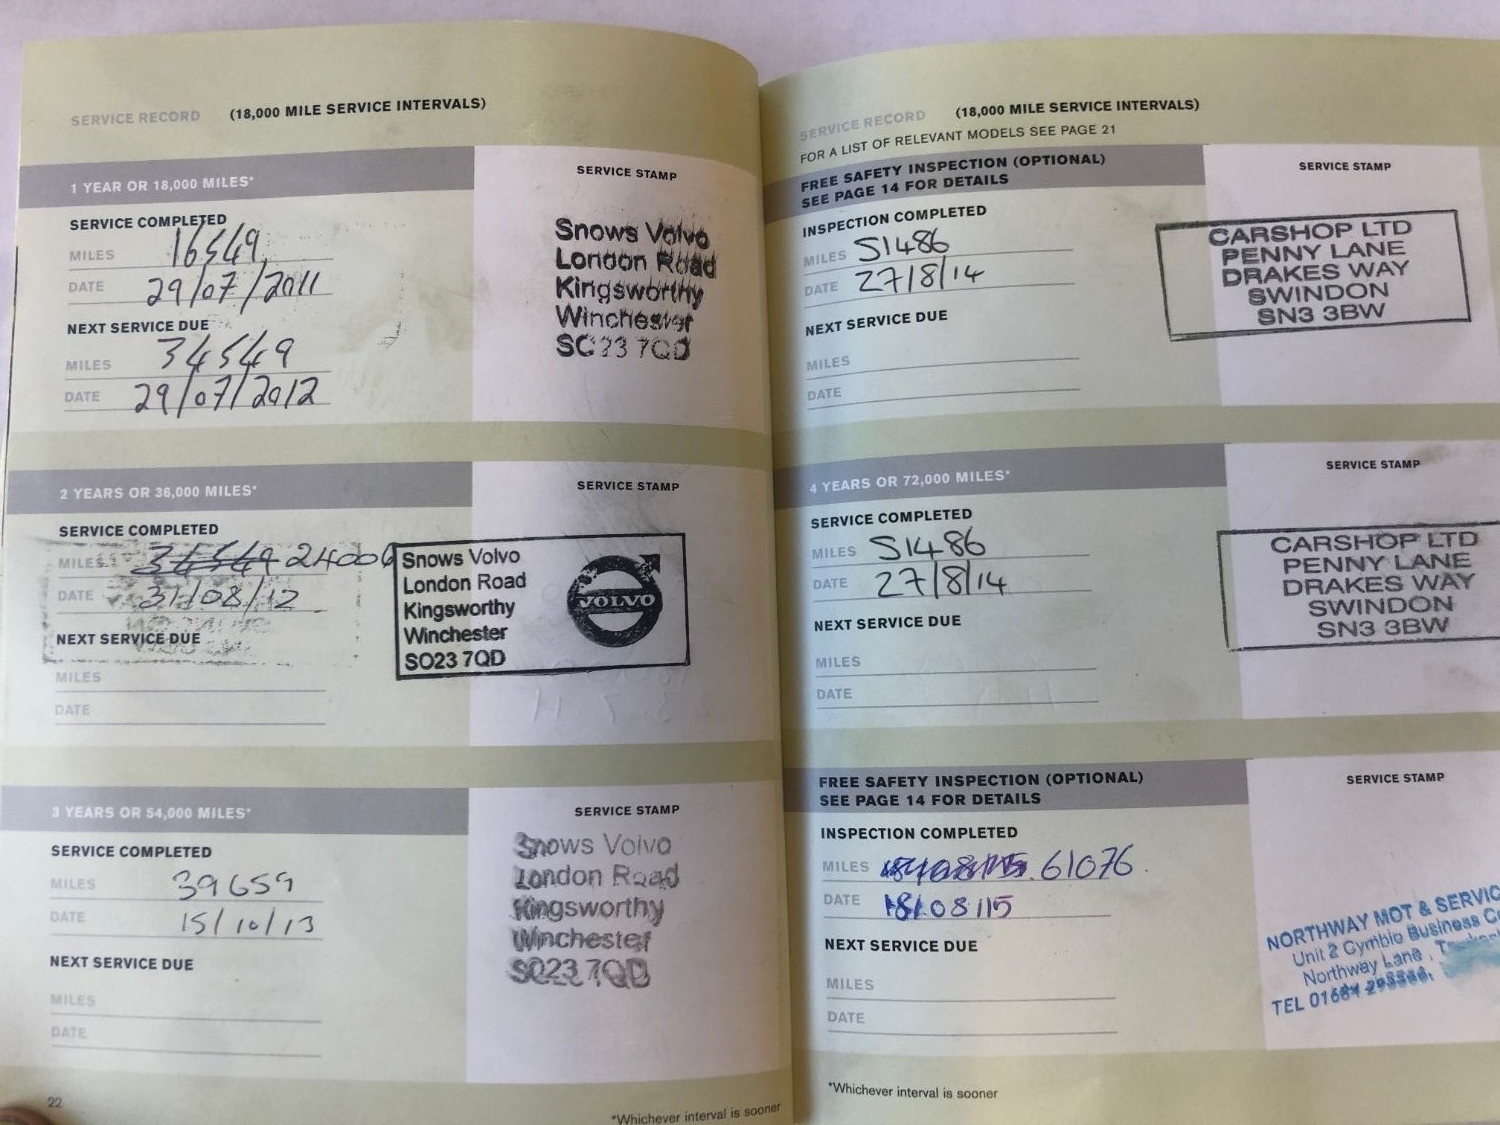 SERVICE RECORD (18,000 MILE SERVICE INTERVALS)
1 YEAR OR 18,000 MILES*
SERVICE STAMP
SERVICE COMPLETED
MILES 16549
DATE 29/07/2011
NEXT SERVICE DUE
MILES 34549
DATE 29/07/2012
Snows Volvo
London Road
Kingsworthy
Winchester
SO23 7QD
2 YEARS OR 36,000 MILES*
SERVICE STAMP
SERVICE COMPLETED
MILES 34549 24006
DATE 31/08/12
NEXT SERVICE DUE
MILES
DATE
Snows Volvo
London Road
Kingsworthy
Winchester
SO23 7QD
VOLVO
3 YEARS OR 54,000 MILES*
SERVICE STAMP
SERVICE COMPLETED
MILES 39659
DATE 15/10/13
NEXT SERVICE DUE
MILES
DATE
Snows Volvo
London Road
Kingsworthy
Winchester
SO23 7QD
22
*Whichever interval is sooner
SERVICE RECORD (18,000 MILE SERVICE INTERVALS)
FOR A LIST OF RELEVANT MODELS SEE PAGE 21
FREE SAFETY INSPECTION (OPTIONAL)
SEE PAGE 14 FOR DETAILS
SERVICE STAMP
INSPECTION COMPLETED
MILES 51486
DATE 27/8/14
NEXT SERVICE DUE
MILES
DATE
CARSHOP LTD
PENNY LANE
DRAKES WAY
SWINDON
SN3 3BW
4 YEARS OR 72,000 MILES*
SERVICE STAMP
SERVICE COMPLETED
MILES 51486
DATE 27/8/14
NEXT SERVICE DUE
MILES
DATE
CARSHOP LTD
PENNY LANE
DRAKES WAY
SWINDON
SN3 3BW
FREE SAFETY INSPECTION (OPTIONAL)
SEE PAGE 14 FOR DETAILS
SERVICE STAMP
INSPECTION COMPLETED
MILES 61076
DATE 18/08/15
NEXT SERVICE DUE
MILES
DATE
NORTHWAY MOT & SERVIC
Unit 2 Cymbio Business Ce
Northway Lane,
TEL 01684
*Whichever interval is sooner